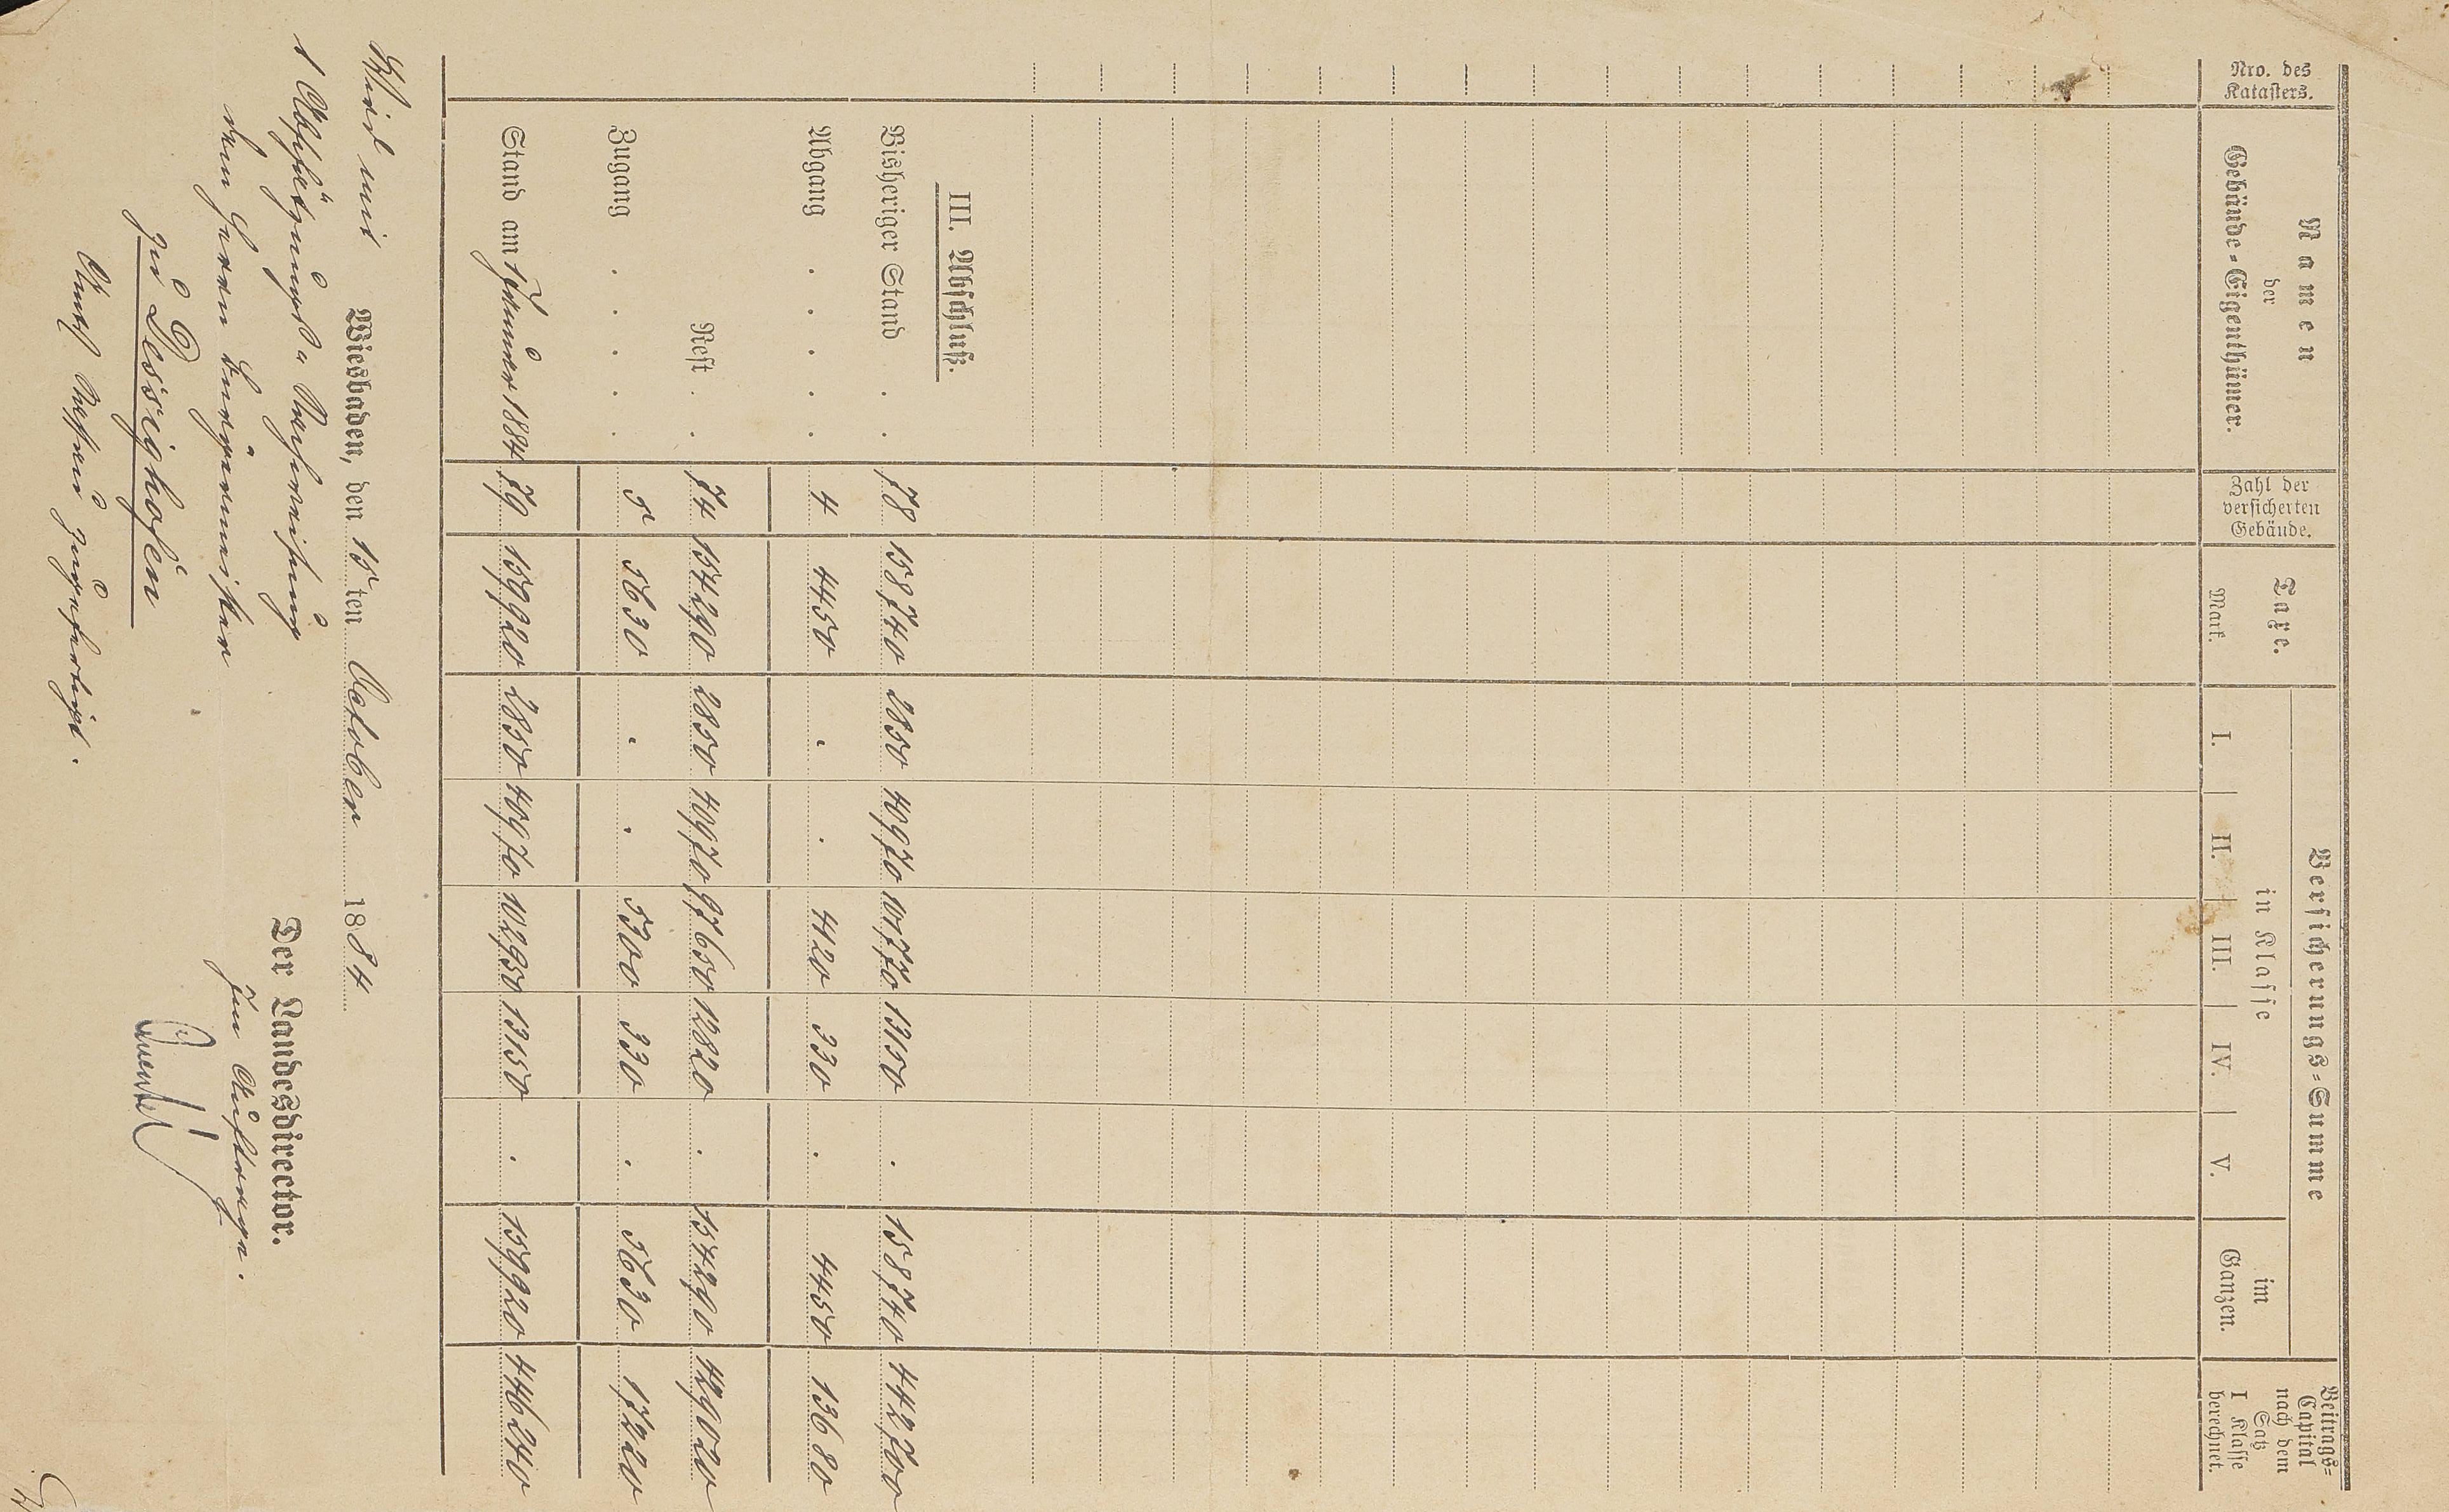 Nro. des Katasters.
Namen
der
Gebäude-Eigenthümer.
Zahl der versicherten Gebäude.
Taxe.
Mark.
Versicherungs-Summe
in Klasse
I. II. III. IV. V.
im Ganzen.
Beitrags-Capital nach dem Satz I Klasse berechnet.
III. Abschluß.
Bisheriger Stand . . 78 158740 2850 40970 101770 13150 . 158740 442700
Abgang . . . . . 4 4450 . . 4120 330 . 4450 13680
Rest . . 74 154290 2850 40970 97650 12820 . 154290 429020
Zugang . . . . . 5 5630 . . 5300 330 . 5630 17220
Stand am 1 Januar 1884 79 159920 2850 40970 102950 13150 . 159920 446240
Wiesbaden, den 15ten October 1884
Wird mit
1 Abschätzungs-
dem Herrn Bürgermeister
zu Dessighofen
zugefertigt.
Der Landesdirector.
Im Auftrage.